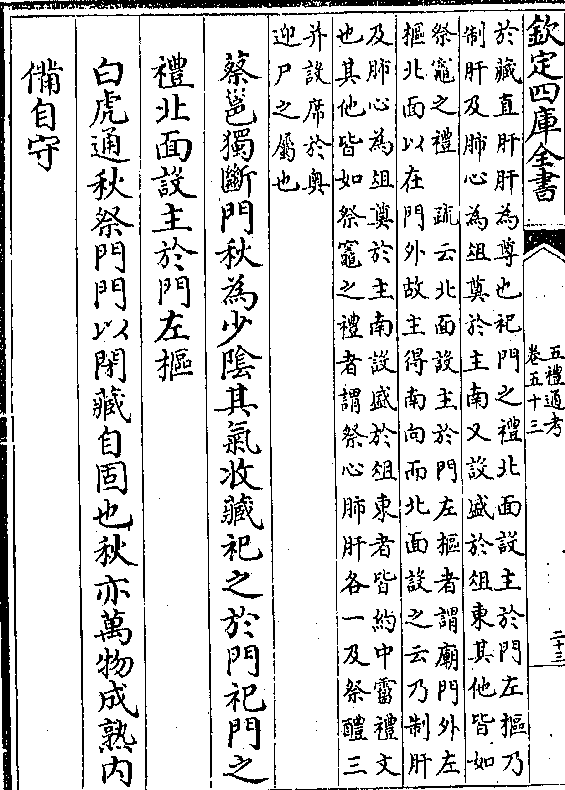 欽定四庫全書
五禮通考
卷五十三
二十三
於藏直肝肝為尊也祀門之禮北面設主於門左樞乃
制肝及肺心為俎奠於主南又設盛於俎東其他皆如
祭竈之禮　疏云北面設主於門左樞者謂廟門外左
樞北面以在門外故主得南向而北面設之云乃制肝
及肺心為俎奠於主南設盛於俎東者皆約中霤禮文
也其他皆如祭竈之禮者謂祭心肺肝各一及祭醴三
并設席於奧
迎尸之屬也
蔡邕獨斷門秋為少陰其氣收藏祀之於門祀門之
禮北面設主於門左樞
白虎通秋祭門門以閉藏自固也秋亦萬物成熟内
備自守